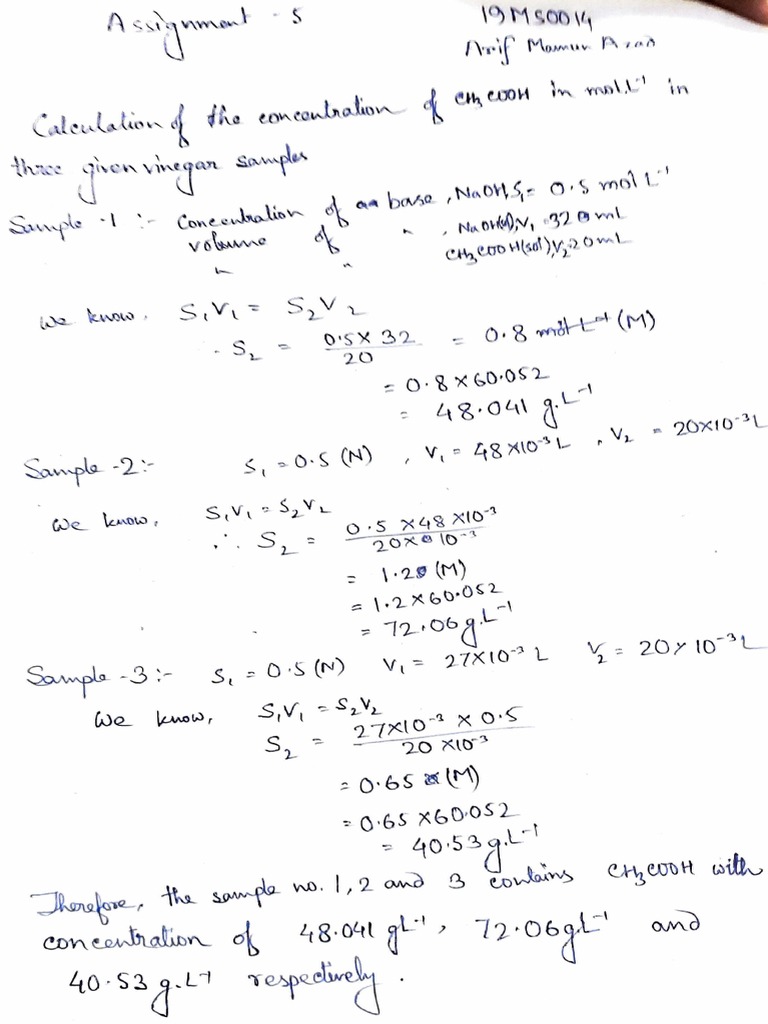 Assignment - 5
19MS0014
Arif Mamun
Calculation of the concentration of CH3COOH in mol.L⁻¹ in
three given vinegar samples
Sample -1 :- Concentration of base, NaOH, S₁ = 0.5 mol L⁻¹
volume of " , NaOH(sol), V₁ = 32 mL
" " CH₃COOH(sol), V₂ = 20 mL
We know, S₁V₁ = S₂V₂
∴ S₂ = 0.5 × 32 / 20 = 0.8 (M)
= 0.8 × 60.052
= 48.041 g.L⁻¹
Sample -2:- S₁ = 0.5 (N) , V₁ = 48 ×10⁻³ L , V₂ = 20×10⁻³ L
We know, S₁V₁ = S₂V₂
∴ S₂ = 0.5 × 48 ×10⁻³ / 20× 10⁻³
= 1.2 (M)
= 1.2 × 60.052
= 72.06 g.L⁻¹
Sample -3:- S₁ = 0.5 (N) V₁ = 27×10⁻³ L V₂ = 20 × 10⁻³ L
We know, S₁V₁ = S₂V₂
S₂ = 27×10⁻³ × 0.5 / 20 ×10⁻³
= 0.65 (M)
= 0.65 × 60.052
= 40.53 g.L⁻¹
Therefore, the sample no. 1, 2 and 3 contains CH₃COOH with
concentration of 48.041 gL⁻¹, 72.06 g.L⁻¹ and
40.53 g.L⁻¹ respectively.